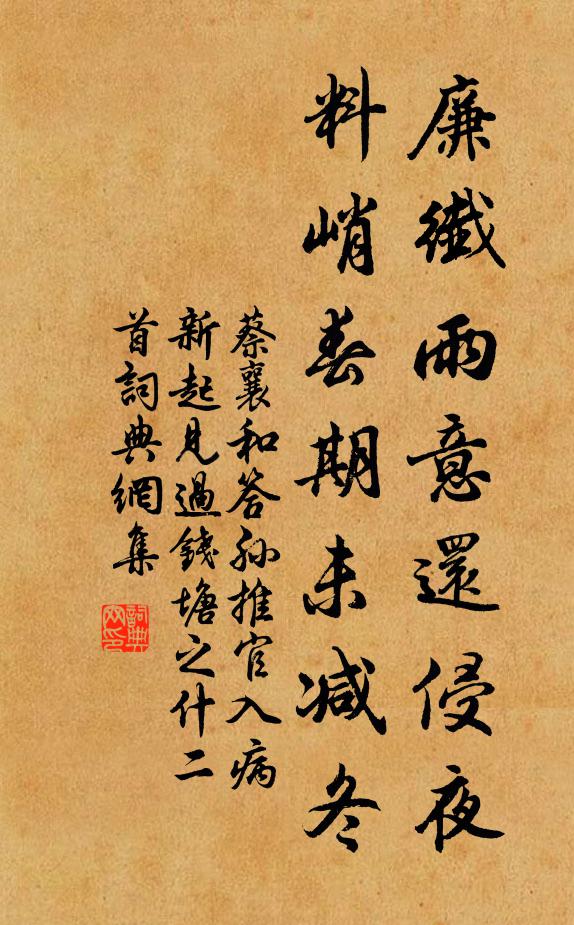 廉纖雨意還侵夜
料峭春期未減冬
蔡襄和答孙推官入病
新起見過錢塘之什二
首詞典網集
詞典网印